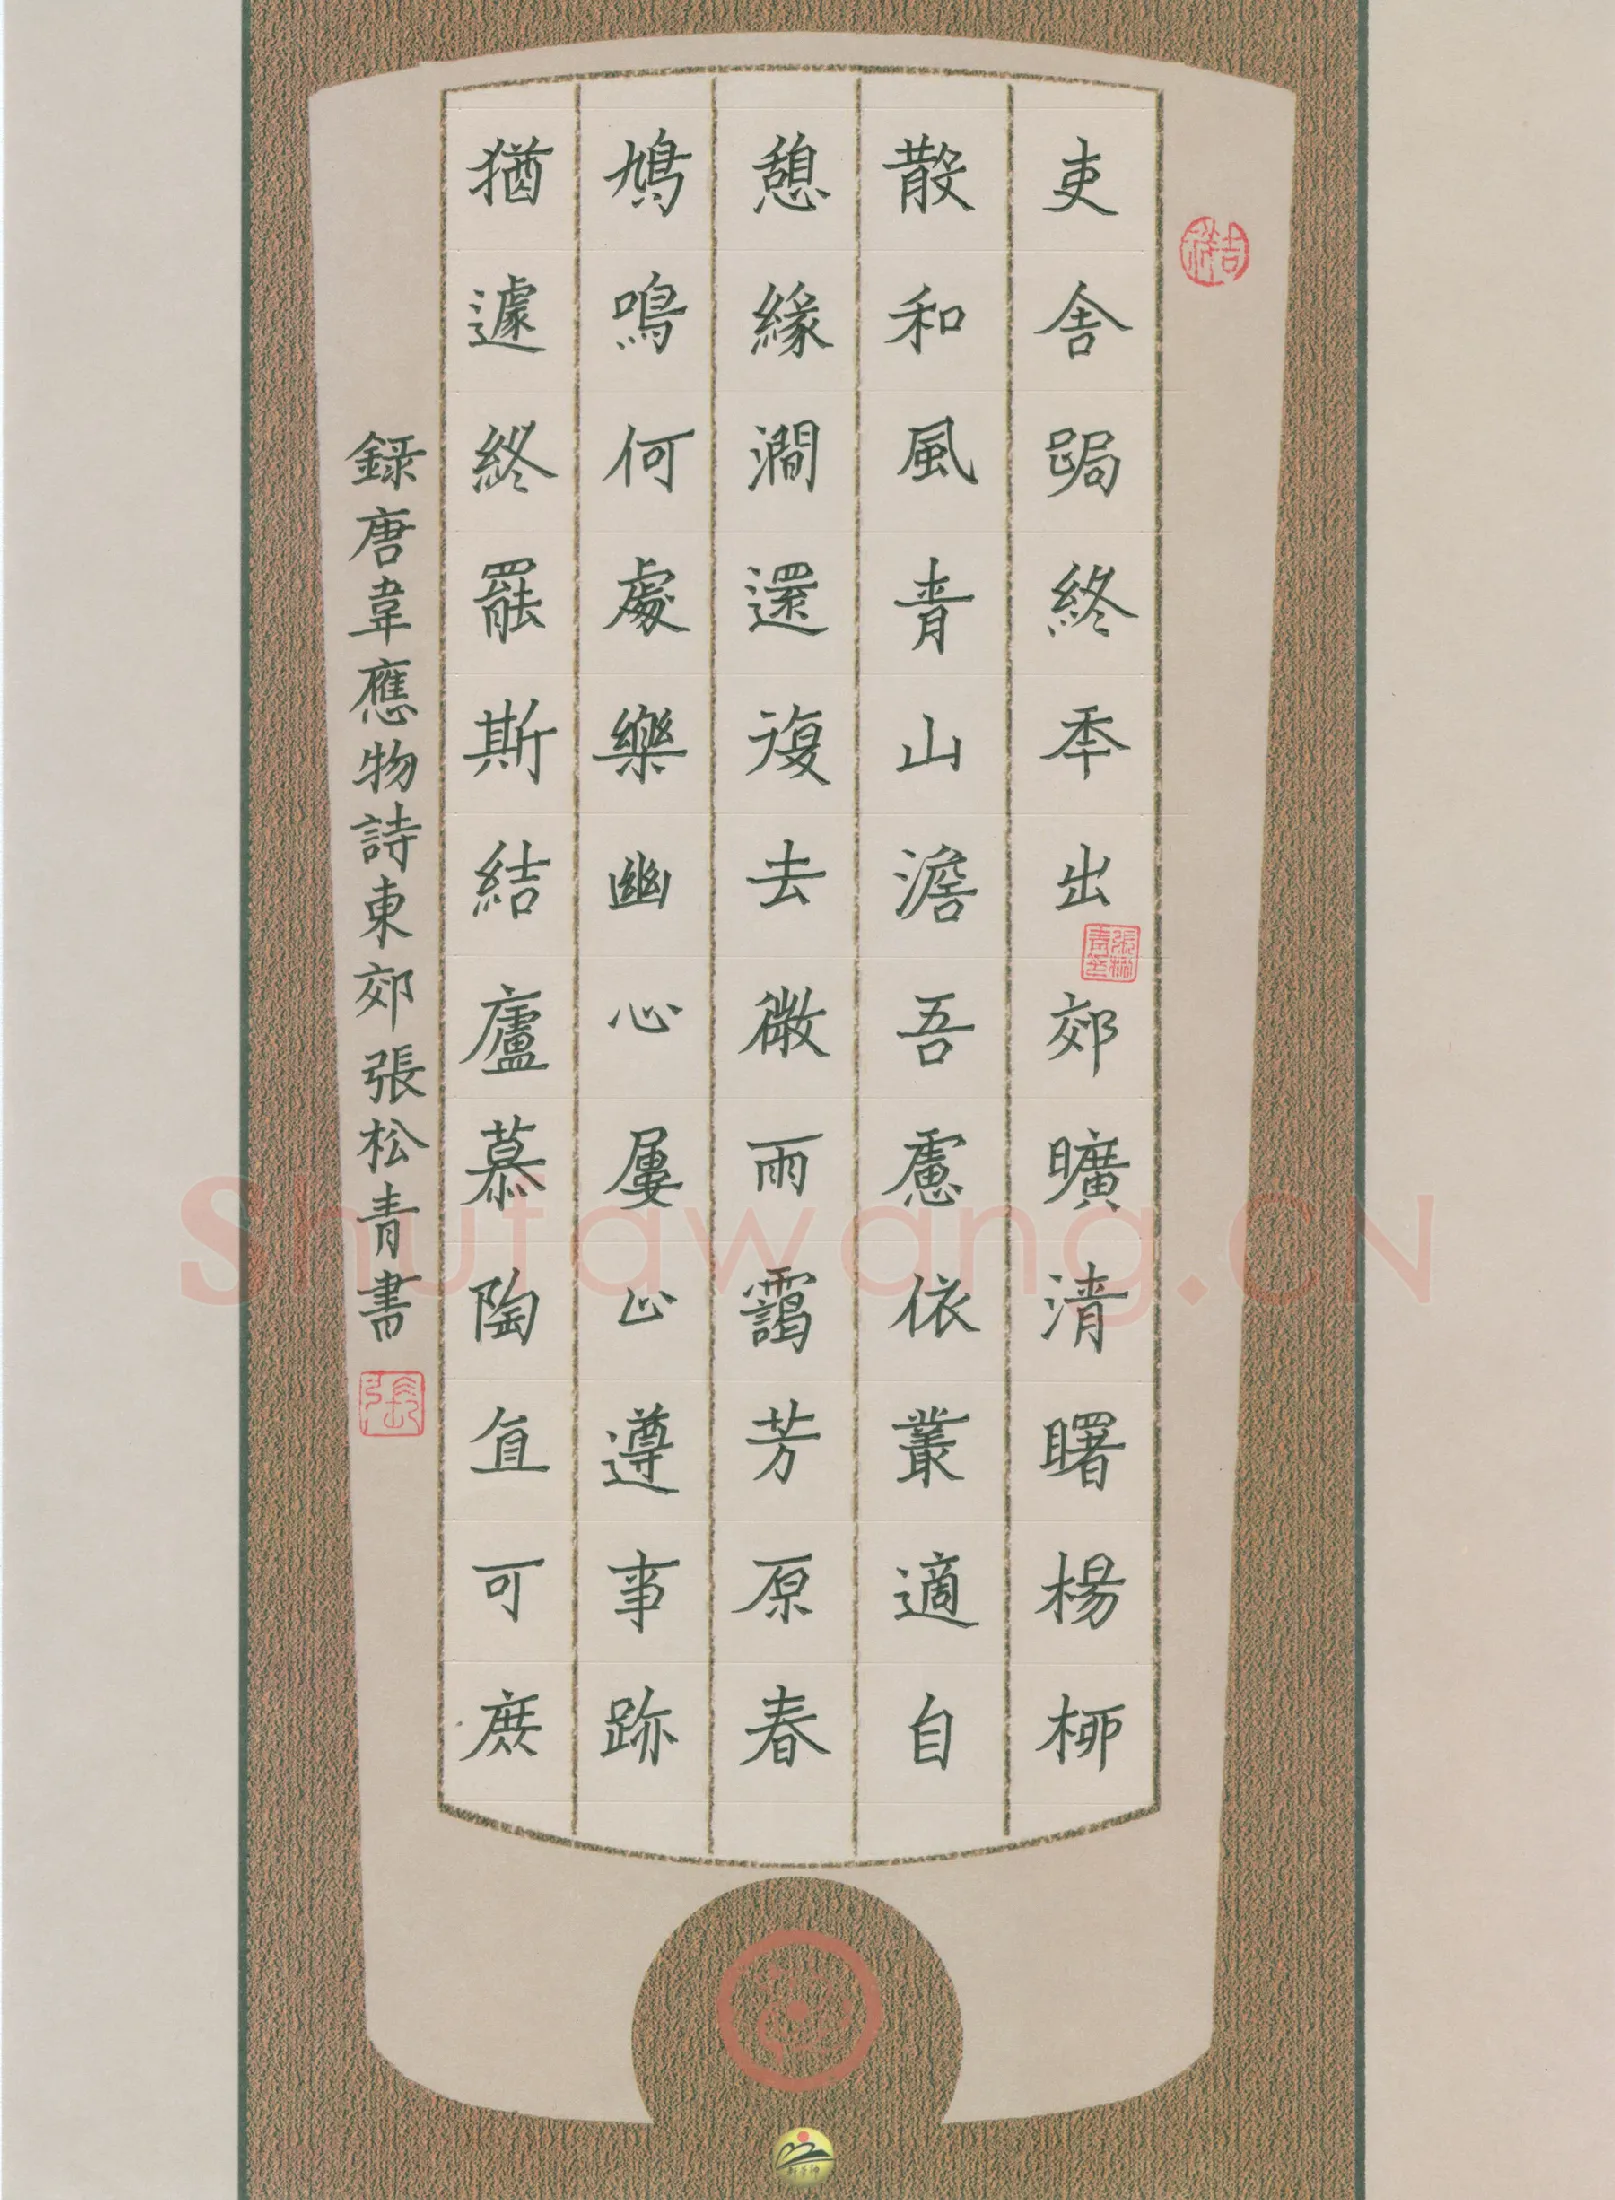 吏舍跼終年出郊曠清曙楊柳
散和風青山澹吾慮依叢適自
憩緣澗還復去微雨靄芳原春
鳩鳴何處樂幽心屢止遵事跡
猶遽終罷斯結廬慕陶直可庶
錄唐韋應物詩東郊張松青書
Shufawang.CN